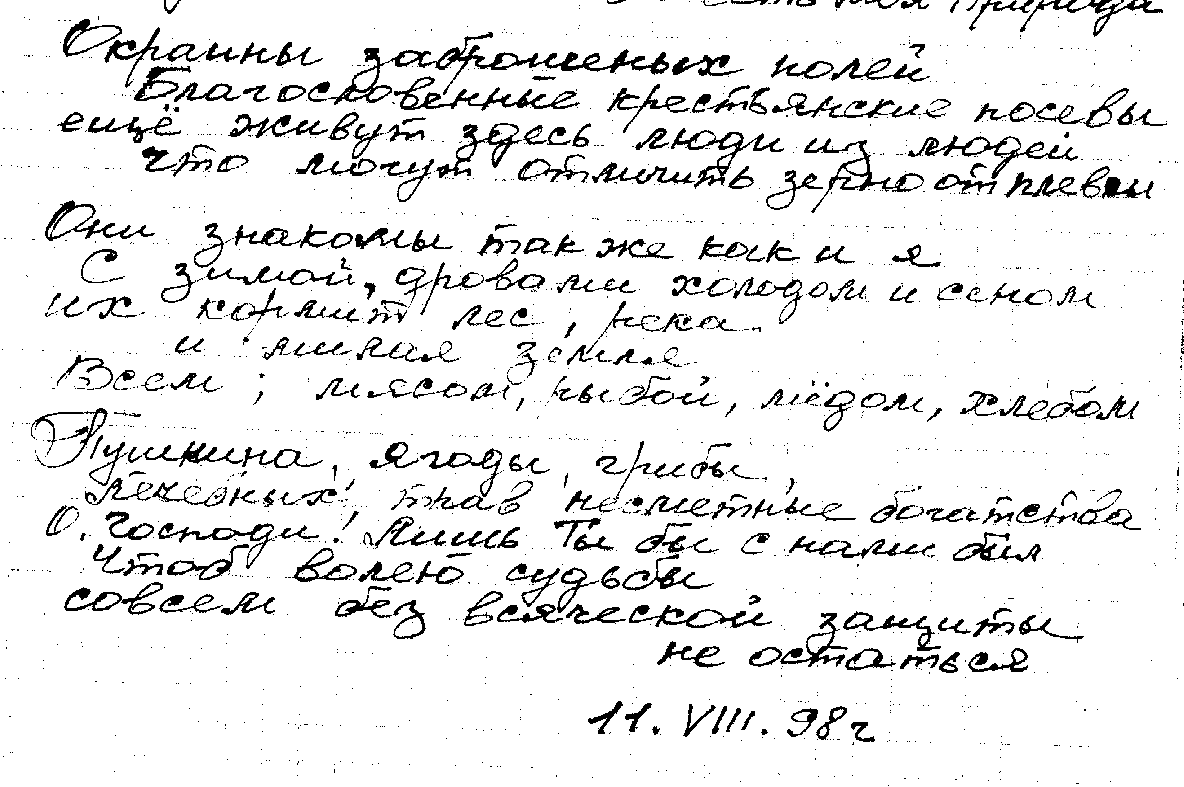 Природа
Окраины заброшеных полей
Благословенные крестьянские посевы
ещё живут здесь люди из людей
что могут отличить зерно от плевы
Они знакомы также как и я
С зимой, дровами холодом и сеном
их кормит лес, река
и милая земля
Всем; мясом, рыбой, мёдом, хлебом
Пушнина, ягоды, грибы,
лечебных, трав несметные богатства
О, Господи! Лишь Ты бы с нами был
Чтоб волею судьбы
совсем без всяческой защиты
не остаться
11. VIII. 98 г